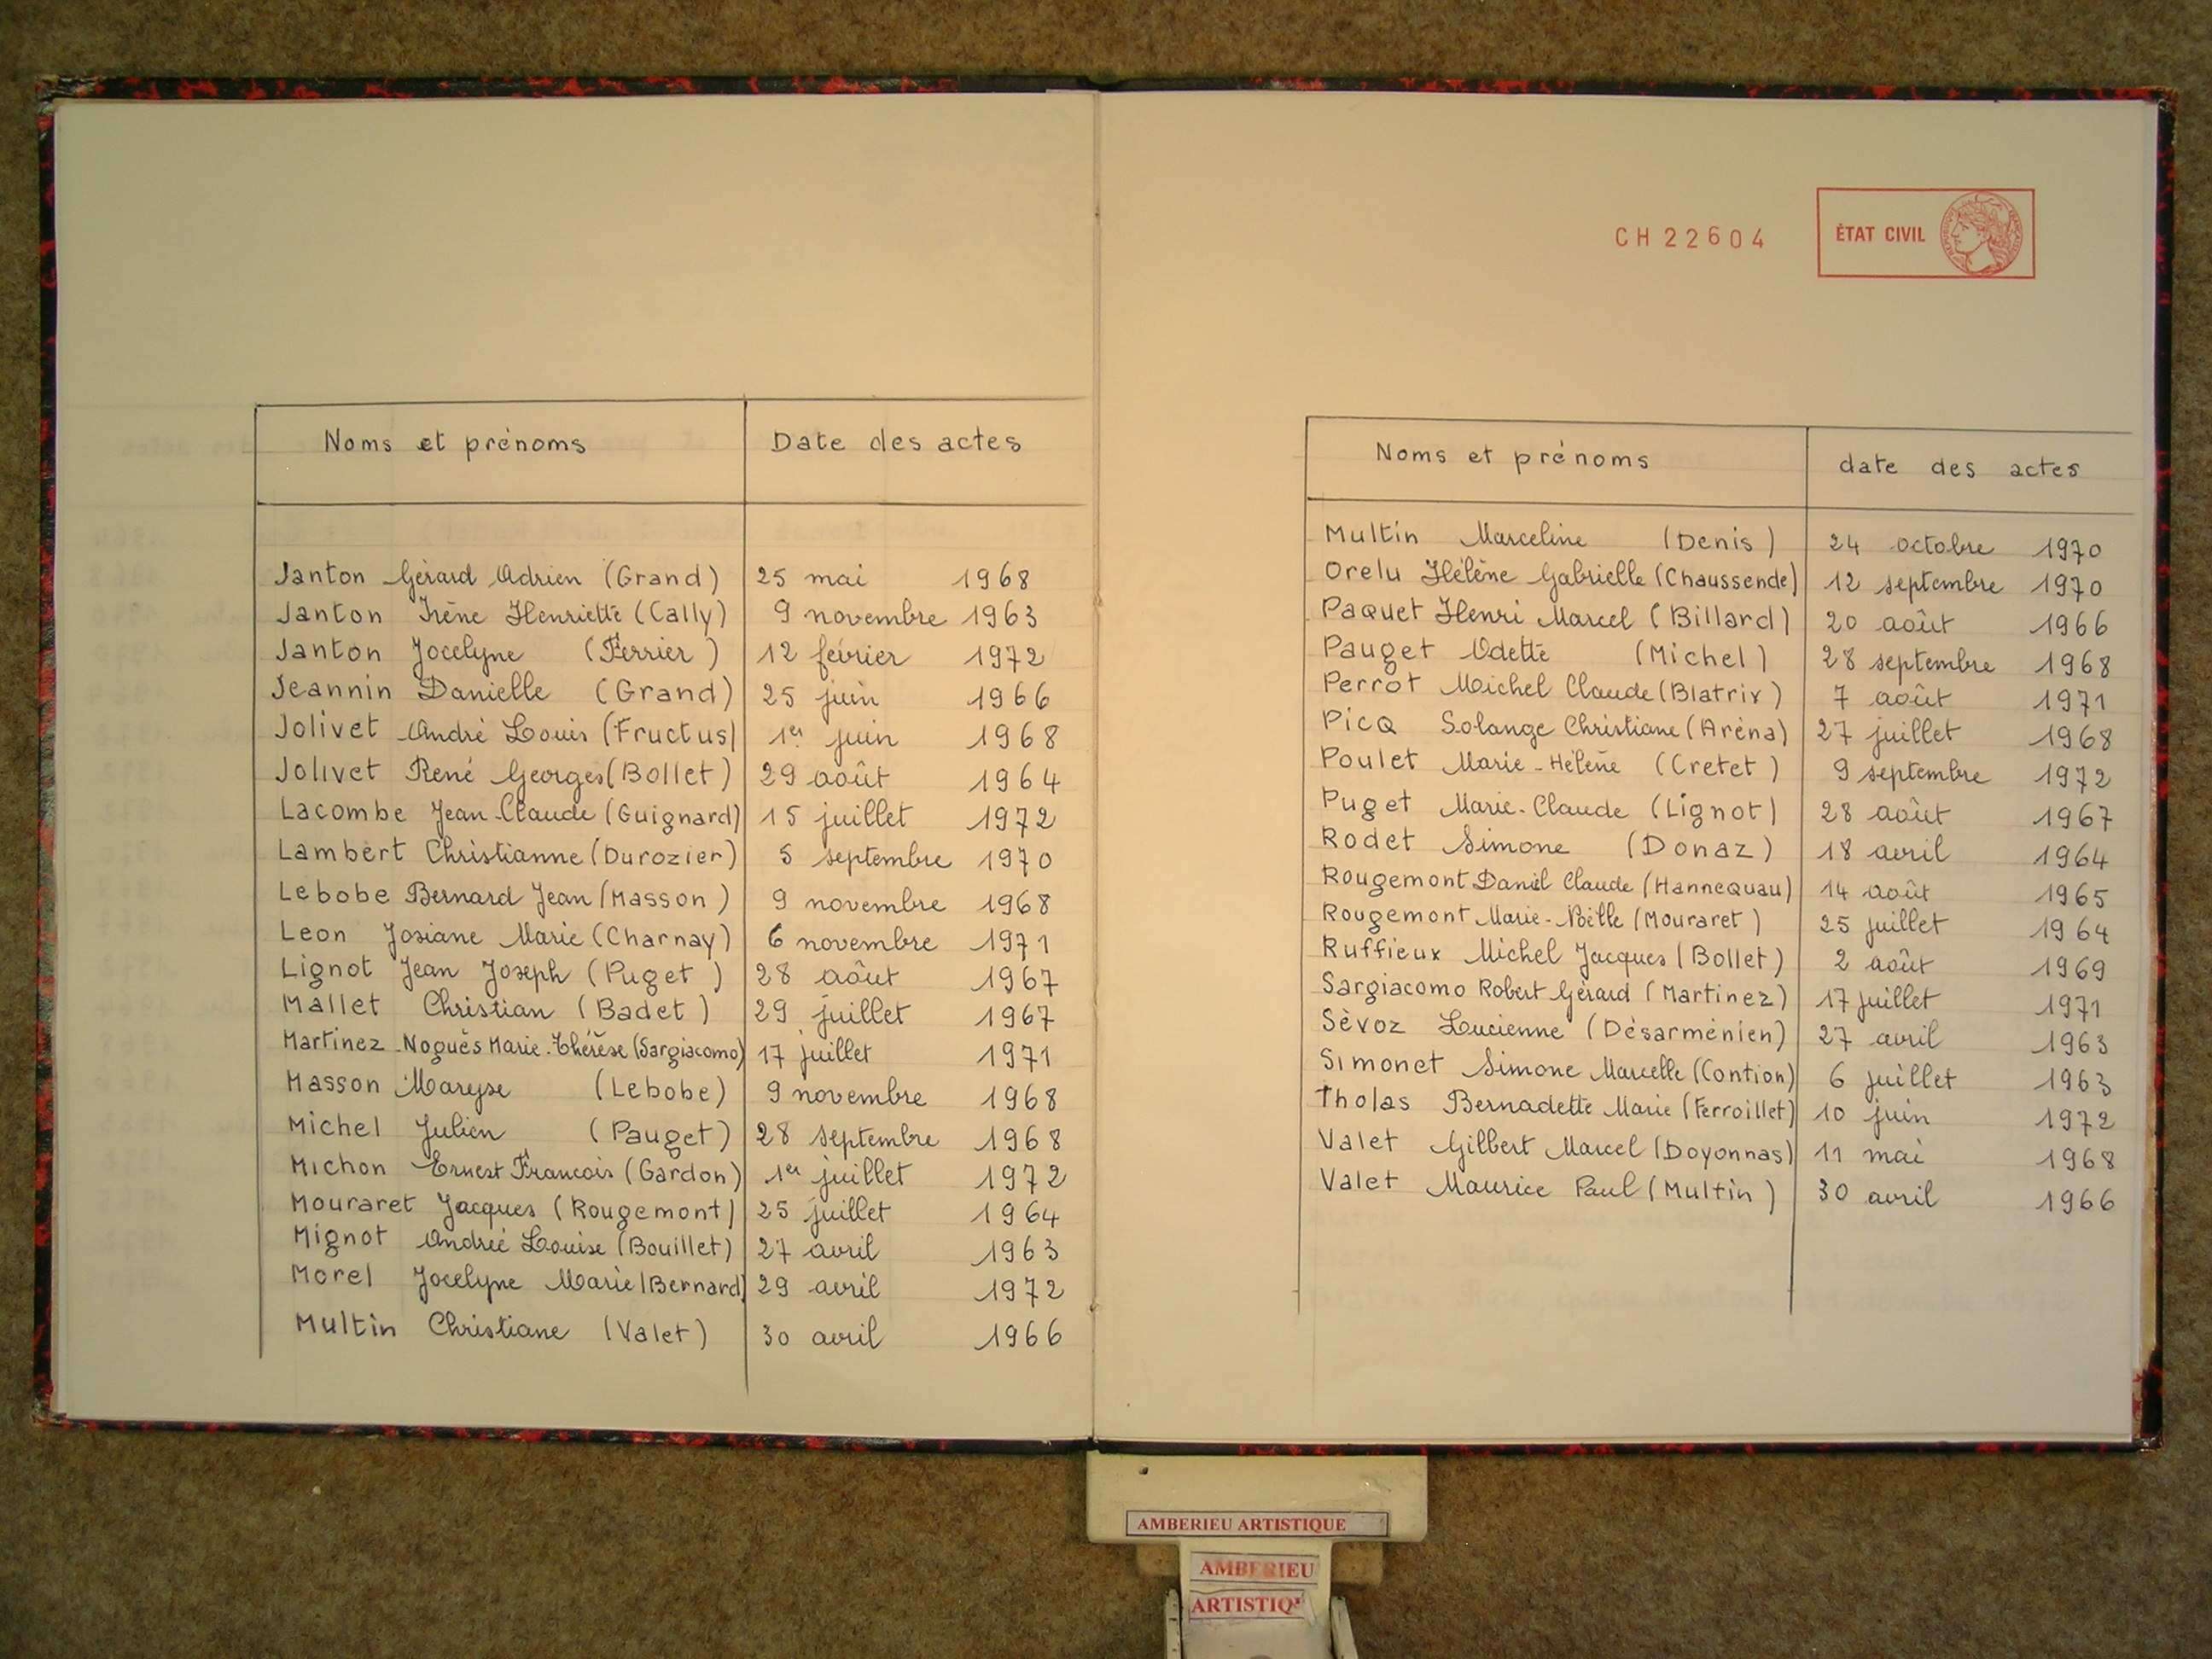 Noms et prénoms Date des actes
Janton Gérard Adrien (Grand) 25 mai 1968
Janton Irène Henriette (Cally) 9 novembre 1963
Janton Jocelyne (Ferrier) 12 février 1972
Jeannin Danielle (Grand) 25 juin 1966
Jolivet André Louis (Fructus) 1er juin 1968
Jolivet René Georges (Bollet) 29 août 1964
Lacombe Jean-Claude (Guignard) 15 juillet 1972
Lambert Christianne (Durozier) 5 septembre 1970
Lebobe Bernard Jean (Masson) 9 novembre 1968
Leon Josiane Marie (Charnay) 6 novembre 1971
Lignot Jean Joseph (Puget) 28 août 1967
Mallet Christian (Badet) 29 juillet 1967
Martinez-Noguès Marie-Thérèse (Sargiacomo) 17 juillet 1971
Masson Maryse (Lebobe) 9 novembre 1968
Michel Julien (Pauget) 28 septembre 1968
Michon Ernest Francois (Gardon) 1er juillet 1972
Mouraret Jacques (Rougemont) 25 juillet 1964
Mignot Andrée Louise (Bouillet) 27 avril 1963
Morel Jocelyne Marie (Bernard) 29 avril 1972
Multin Christiane (Valet) 30 avril 1966
CH 22604
ÉTAT CIVIL
Noms et prénoms date des actes
Multin Marceline (Denis) 24 octobre 1970
Orelu Hélène Gabrielle (Chaussende) 12 septembre 1970
Paquet Henri Marcel (Billard) 20 août 1966
Pauget Odette (Michel) 28 septembre 1968
Perrot Michel Claude (Blatrix) 7 août 1971
Picq Solange Christiane (Aréna) 27 juillet 1968
Poulet Marie-Hélène (Cretet) 9 septembre 1972
Puget Marie-Claude (Lignot) 28 août 1967
Rodet Simone (Donaz) 18 avril 1964
Rougemont Daniel Claude (Hannequau) 14 août 1965
Rougemont Marie-Noëlle (Mouraret) 25 juillet 1964
Ruffieux Michel Jacques (Bollet) 2 août 1969
Sargiacomo Robert Gérard (Martinez) 17 juillet 1971
Sèvoz Lucienne (Désarménien) 27 avril 1963
Simonet Simone Marcelle (Contion) 6 juillet 1963
Tholas Bernadette Marie (Ferroillet) 10 juin 1972
Valet Gilbert Marcel (Doyonnas) 11 mai 1968
Valet Maurice Paul (Multin) 30 avril 1966
AMBERIEU ARTISTIQUE
AMBERIEU
ARTISTIQ